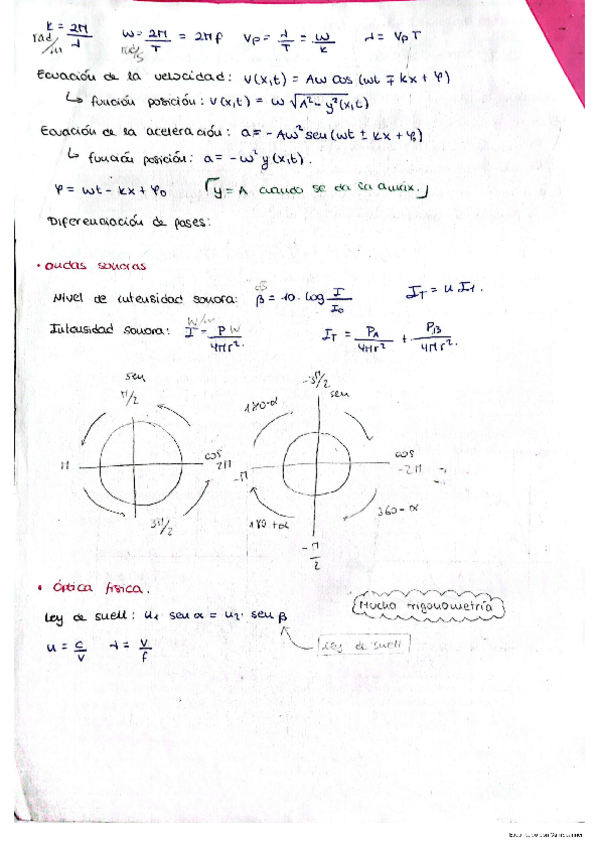 k = 2π/λ rad/m   ω = 2π/T = 2πf rad/s   Vp = λ/T = ω/k   λ = Vp T
Ecuación de la velocidad: v(x,t) = Aω cos (ωt ∓ kx + φ)
↳ función posición: v(x,t) = ω √A² - y²(x,t)
Ecuación de la aceleración: a = - Aω² sen (ωt ± kx + φ₀)
↳ función posición: a = - ω² y(x,t).
φ = ωt - kx + φ₀   ⌈y = A cuando se da sa amáx.⌋
Diferenciación de fases:
• ondas sonoras
Nivel de intensidad sonora: β = 10 · log I/I₀   dB   I_T = n I₁.
Intensidad sonora: I = P/4πr².   W/m²   W   I_T = P_A/4πr² + P_B/4πr².
sen   -3π/2
π/2   180-α   sen
π   cos   2π   -π   cos   -2π
3π/2   180+α   360-α
-π/2
• Óptica física.
Ley de snell: n₁ sen α = n₂ · sen β   Mucha trigonometría
n = c/v   λ = v/f   Ley de snell